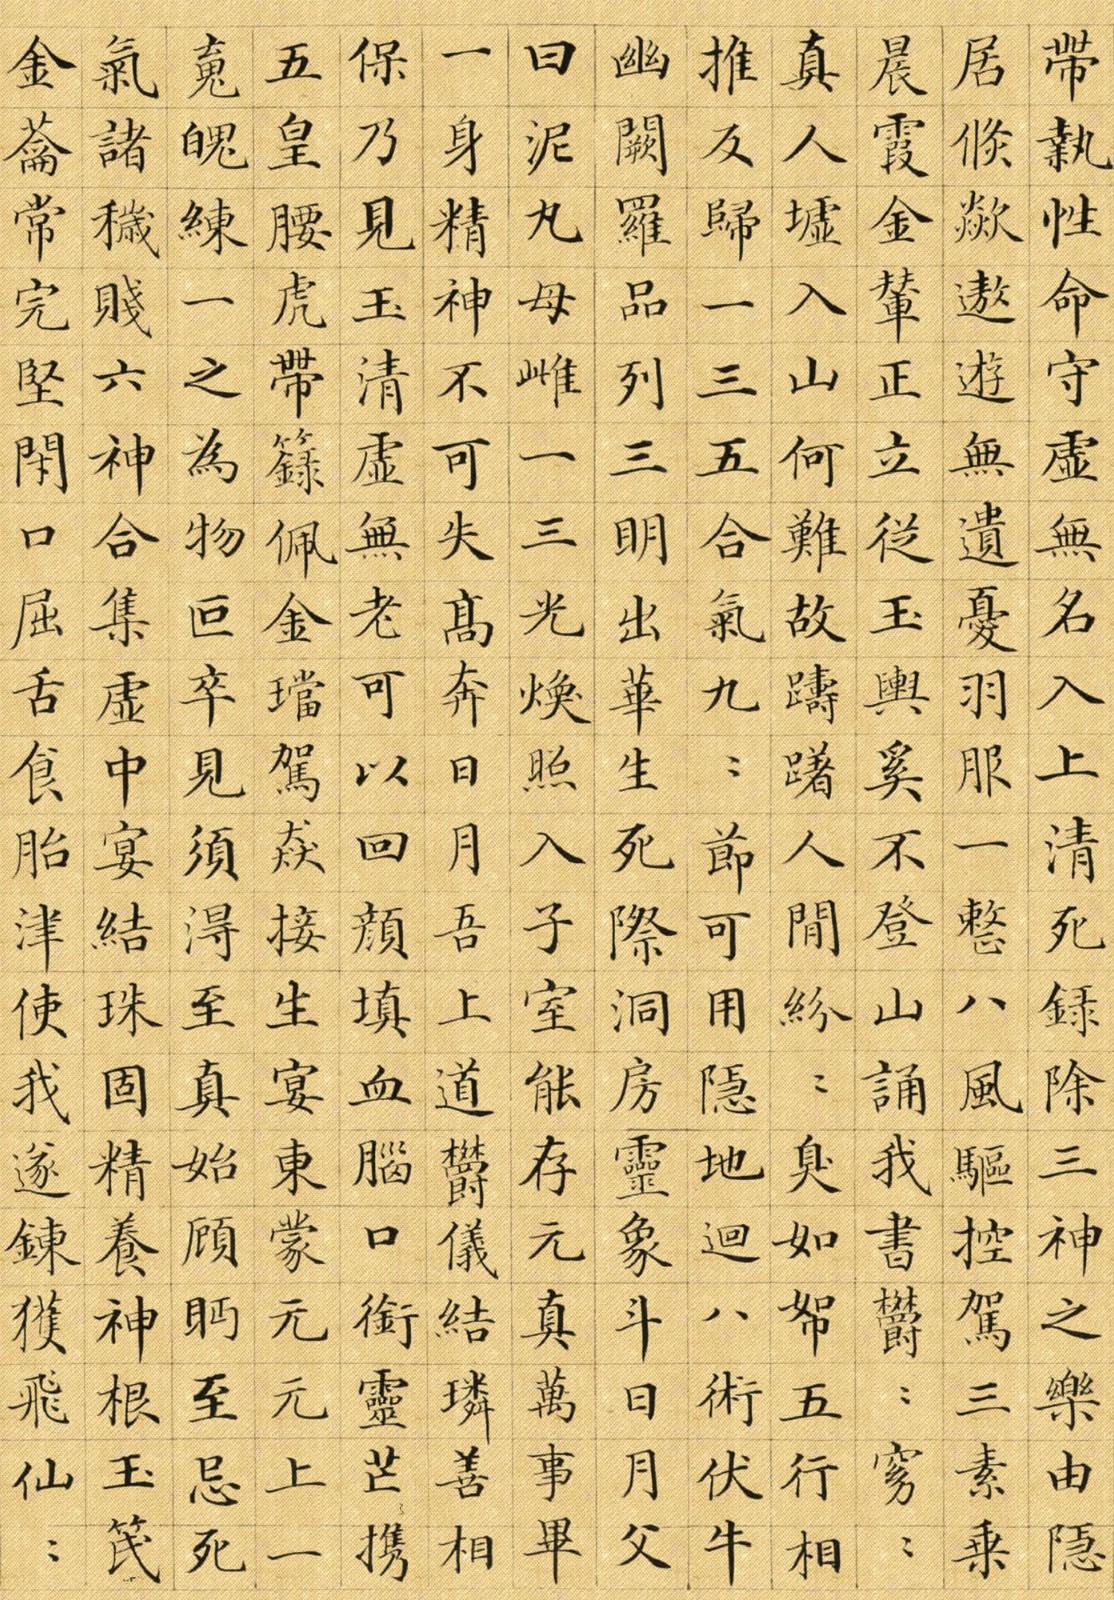 帶執性命守虛無名入上清死録除三神之樂由隱
居倏歘遨遊無遺憂羽服一整八風驅控駕三素乗
晨霞金輦正立從玉輿奚不登山誦我書欝〻窈〻
真人墟入山何難故躊躇人間紛〻臭如帤五行相
推反歸一三五合氣九〻節可用隱地迴八術伏牛
幽闕羅品列三明出華生死際洞房靈象斗日月父
曰泥丸母雌一三光煥照入子室能存元真萬事畢
一身精神不可失髙奔日月吾上道欝儀結璘善相
保乃見玉清虛無老可以回顔填血腦口銜靈芒携
五皇腰虎帶籙佩金璫駕焱接生宴東蒙元元上一
䰟魄練一之為物叵卒見須得至真始顧眄至忌死
氣諸穢賤六神合集虛中宴結珠固精養神根玉笢
金蘥常完堅閇口屈舌食胎津使我遂鍊獲飛仙〻